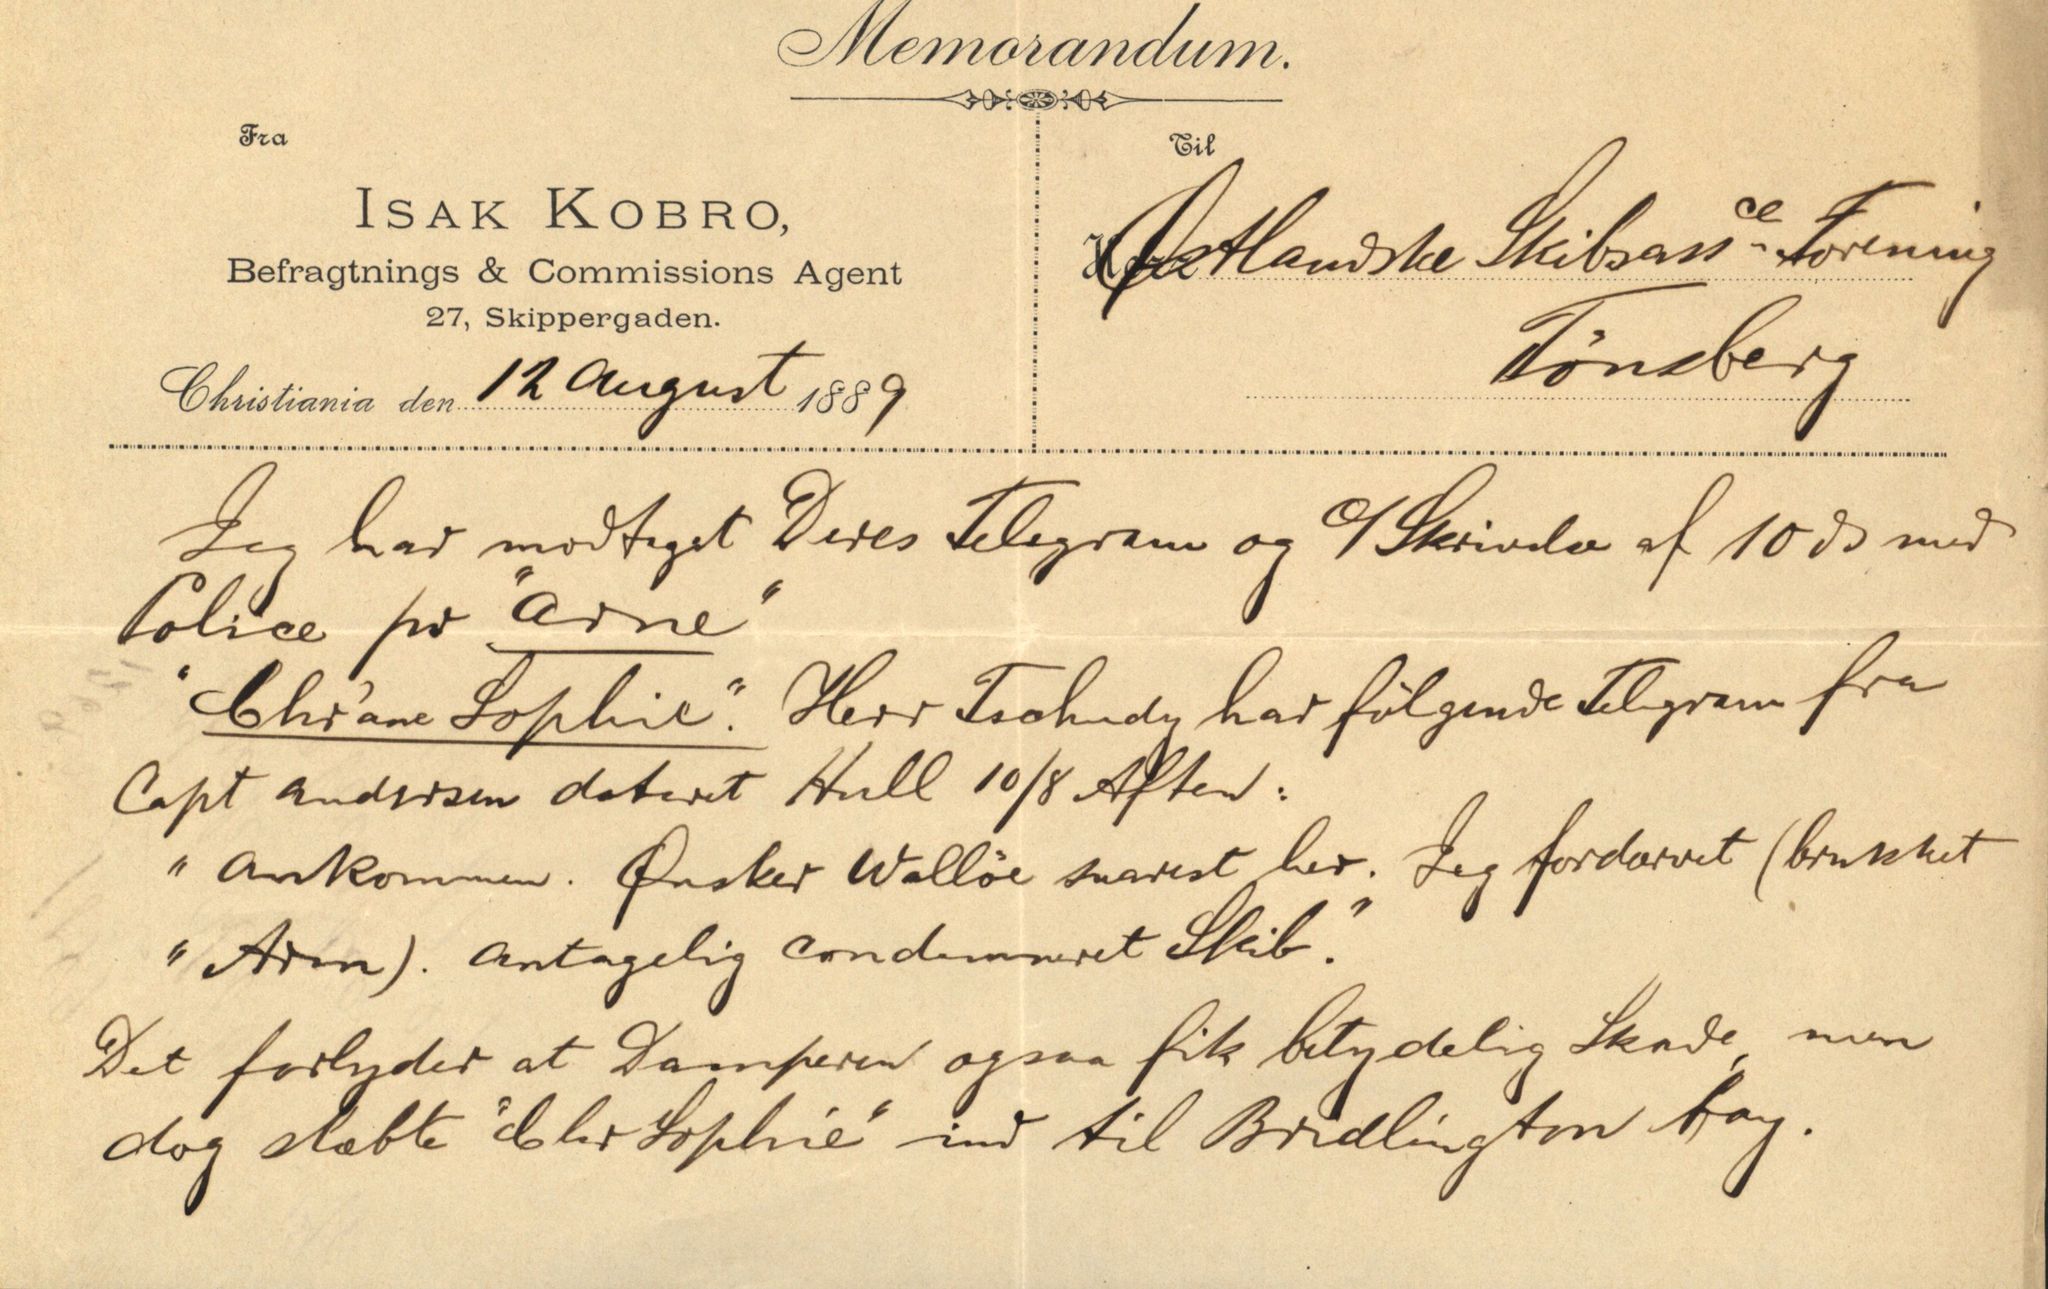 Memorandum.
Fra
Til
ISAK KOBRO,
Befragtnings & Commissions Agent
27, Skippergaden.
Christiania den 12 August 1889
Østlandske Skibsassce Forening
Tönsberg
Jeg har modtaget Deres Telegram og Skrivelse af 10 ds med
Police pr "Arne"
"Chr'ane Sophie". Herr Tschudy har følgende Telegram fra
Capt Andersen dateret Hull 10/8 Aften:
" Ankommen. Ønsker Wallöe snarest her. Jeg fordærvet (brukket
" Arm). Antagelig condemneret Skib."
Det forlyder at Damperen ogsaa fik betydelig Skade, men
dog slæbte "Chr Sophie" ind til Bridlington bay.